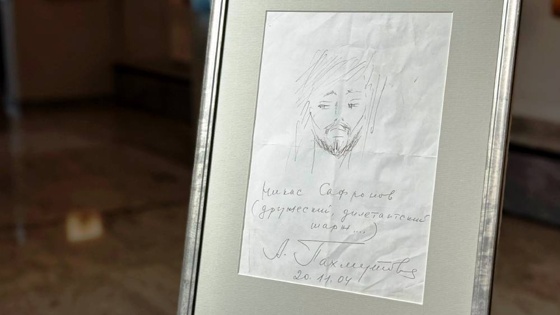 Никас Сафронов
(дружеский дилетантский
шарж...)
А. Пахмутова
20.11.04